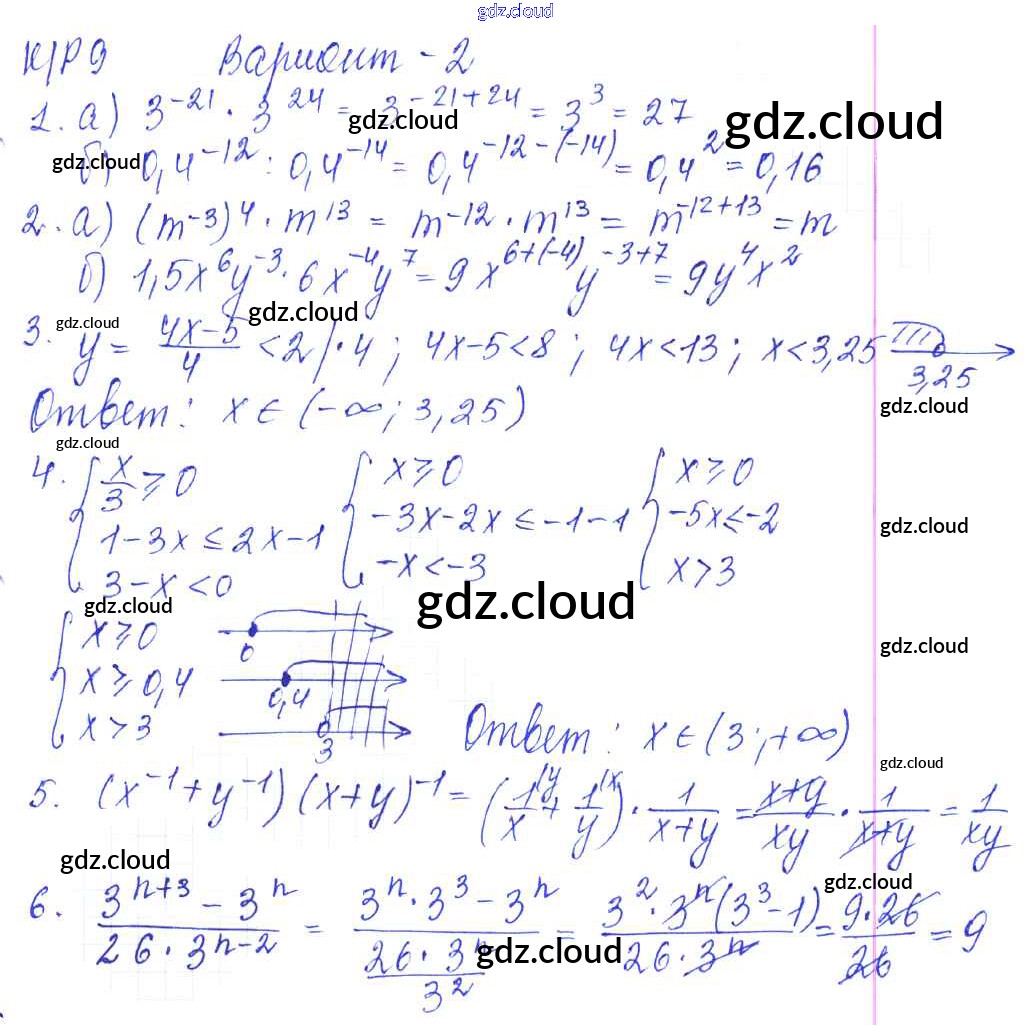 gdz.cloud
К/Р 9 Вариант - 2
1. а) 3^-21 · 3^24 = 3^-21+24 = 3^3 = 27
gdz.cloud gdz.cloud
б) 0,4^-12 : 0,4^-14 = 0,4^-12-(-14) = 0,4^2 = 0,16
gdz.cloud
2. а) (m^-3)^4 · m^13 = m^-12 · m^13 = m^-12+13 = m
б) 1,5x^6y^-3 · 6x^-4y^7 = 9x^6+(-4)y^-3+7 = 9y^4x^2
gdz.cloud gdz.cloud
3. y = (4x-5)/4 < 2 | · 4; 4x-5<8; 4x<13; x<3,25
3,25
gdz.cloud
Ответ: x ∈ (-∞; 3,25)
gdz.cloud
4. { x/3 ≥ 0 { x ≥ 0 { x ≥ 0
1-3x ≤ 2x-1 -3x-2x ≤ -1-1 -5x ≤ -2
gdz.cloud
3-x < 0 -x < -3 x > 3
gdz.cloud gdz.cloud
{ x ≥ 0 0
gdz.cloud
x ≥ 0,4 0,4
x > 3 3
Ответ: x ∈ (3; +∞)
gdz.cloud
5. (x^-1 + y^-1)(x+y)^-1 = (1/x^(y + 1/y^(x) · 1/(x+y) = (x+y)/(xy) · 1/(x+y) = 1/(xy)
gdz.cloud gdz.cloud
6. (3^n+3 - 3^n)/(26 · 3^n-2) = (3^n · 3^3 - 3^n)/((26 · 3^n)/3^2) = (3^2 · 3^n(3^3-1))/(26 · 3^n) = (9·26)/26 = 9
gdz.cloud